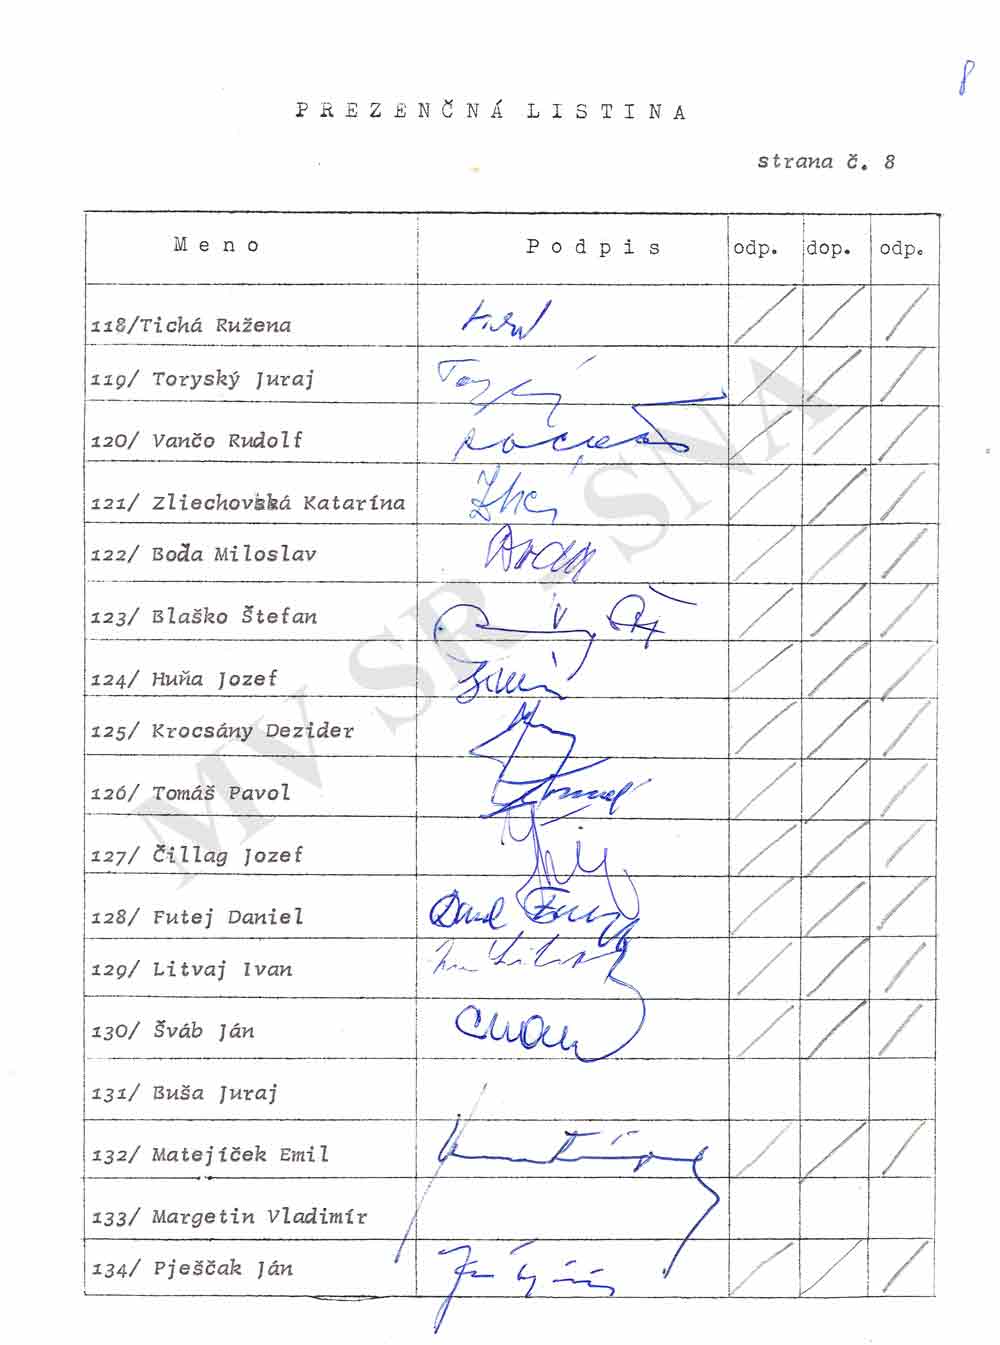 8
PREZENČNÁ LISTINA
strana č. 8
Meno Podpis odp. dop. odp.
118/Tichá Ružena
119/ Toryský Juraj
120/ Vančo Rudolf
121/ Zliechovská Katarína
122/ Boďa Miloslav
123/ Blaško Štefan
124/ Huňa Jozef
125/ Krocsány Dezider
126/ Tomáš Pavol
127/ Čillag Jozef
128/ Futej Daniel
129/ Litvaj Ivan
130/ Šváb Ján
131/ Buša Juraj
132/ Matejíček Emil
133/ Margetin Vladimír
134/ Pješčak Ján
MV SR - SNA